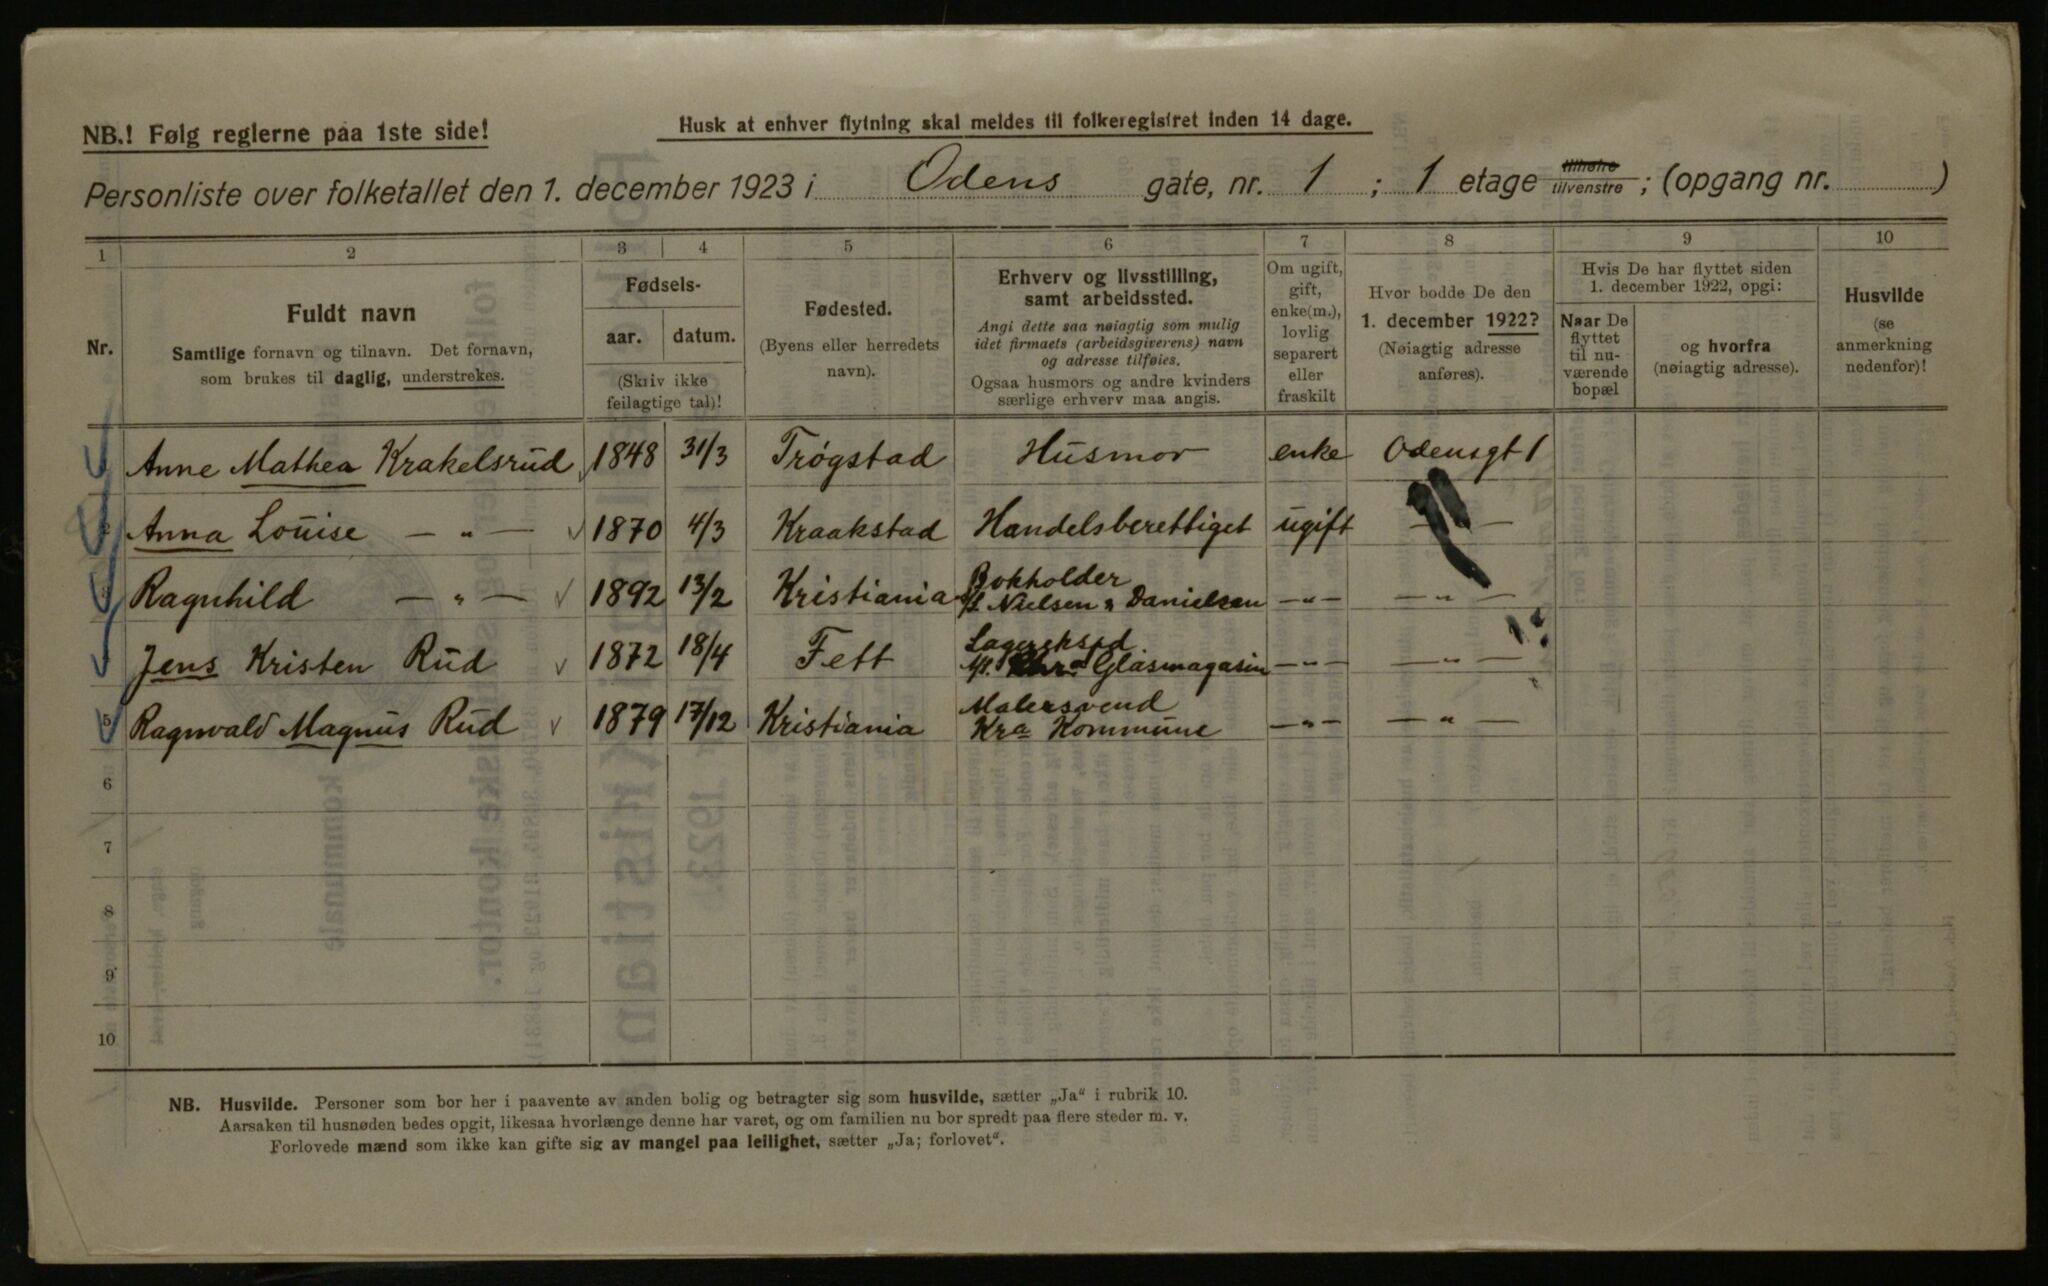 NB.! Følg reglerne paa 1ste side!
Husk at enhver flytning skal meldes til folkeregistret inden 14 dage.
Personliste over folketallet den 1. december 1923 i Odens gate, nr. 1 ; 1 etage tilhøire/tilvenstre ; (opgang nr. )
1 2 3 4 5 6 7 8 9 10
Nr.
Fuldt navn
Samtlige fornavn og tilnavn. Det fornavn,
som brukes til daglig, understrekes.
Fødsels-
aar. datum.
(Skriv ikke
feilagtige tal)!
Fødested.
(Byens eller herredets
navn).
Erhverv og livsstilling,
samt arbeidssted.
Angi dette saa nøiagtig som mulig
idet firmaets (arbeidsgiverens) navn
og adresse tilføies.
Ogsaa husmors og andre kvinders
særlige erhverv maa angis.
Om ugift,
gift,
enke(m.),
lovlig
separert
eller
fraskilt
Hvor bodde De den
1. december 1922?
(Nøiagtig adresse
anføres).
Hvis De har flyttet siden
1. december 1922, opgi:
Naar De
flyttet
til nu-
værende
bopæl
og hvorfra
(nøiagtig adresse).
Husvilde
(se
anmerkning
nedenfor)!
Anne Mathea Krakelsrud 1848 31/3 Trøgstad Husmor enke Odensgt 1
2 Anna Louise — „ — 1870 4/3 Kraakstad Handelsberettiget ugift — —
3 Ragnhild — „ — 1892 13/2 Kristiania Bokholder
Nielsen & Danielsen — „ — — „ —
Jens Kristen Rud 1872 18/4 Fett Lagereksped
Kra Glasmagasin — „ — — „ —
5 Ragnvald Magnus Rud 1879 17/12 Kristiania Malersvend
Kra Kommune — „ — — „ —
6
7
8
9
10
NB. Husvilde. Personer som bor her i paavente av anden bolig og betragter sig som husvilde, sætter „Ja“ i rubrik 10.
Aarsaken til husnøden bedes opgit, likesaa hvorlænge denne har varet, og om familien nu bor spredt paa flere steder m. v.
Forlovede mænd som ikke kan gifte sig av mangel paa leilighet, sætter „Ja; forlovet“.